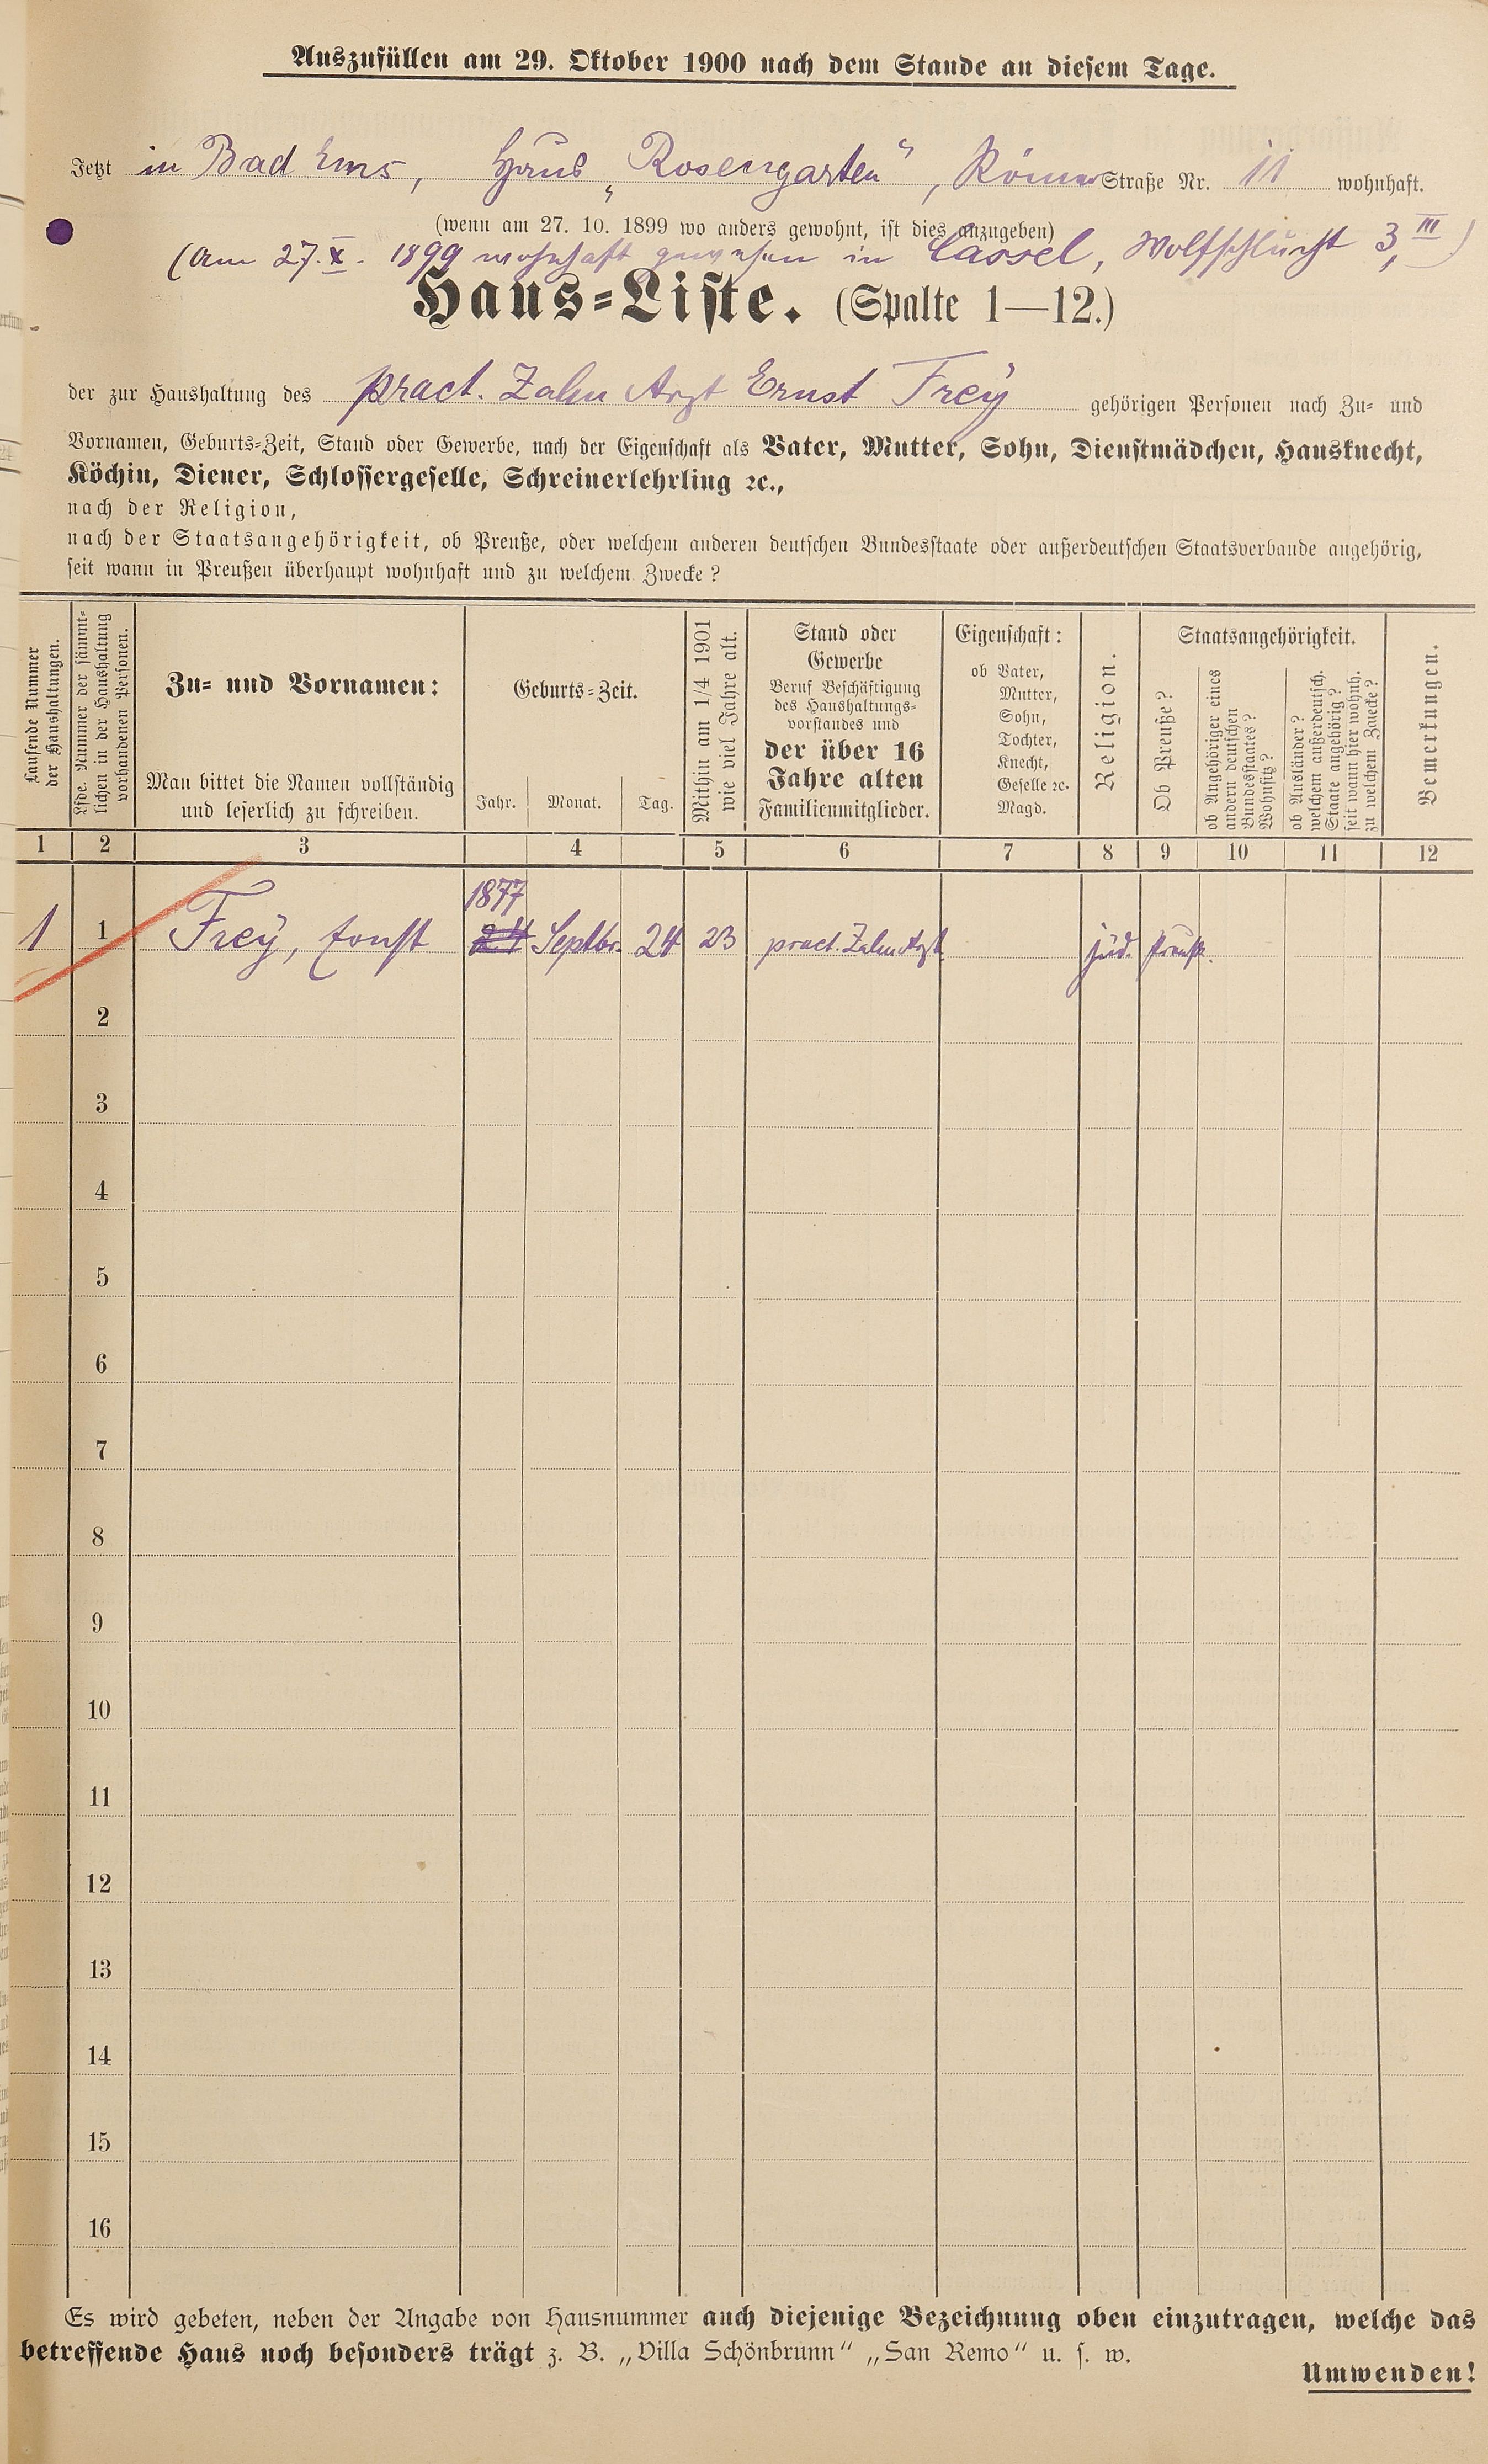 Auszufüllen am 29. Oktober 1900 nach dem Stande an diesem Tage.
Jetzt in Bad Ems, Haus „Rosengarten“, Römer Straße Nr. 11 wohnhaft.
(wenn am 27. 10. 1899 wo anders gewohnt, ist dies anzugeben)
(Am 27. X. 1899 wohnhaft gewesen in Cassel, Wolfsschlucht 3, III)
Haus=Liste. (Spalte 1—12.)
der zur Haushaltung des pract. Zahn Arzt Ernst Frey gehörigen Personen nach Zu= und
Vornamen, Geburts=Zeit, Stand oder Gewerbe, nach der Eigenschaft als Vater, Mutter, Sohn, Dienstmädchen, Hausknecht,
Köchin, Diener, Schlossergeselle, Schreinerlehrling ꝛc.,
nach der Religion,
nach der Staatsangehörigkeit, ob Preuße, oder welchem anderen deutschen Bundesstaate oder außerdeutschen Staatsverbande angehörig,
seit wann in Preußen überhaupt wohnhaft und zu welchem Zwecke?
Laufende Nummer
der Haushaltungen.
Lfde. Nummer der sämmt-
lichen in der Haushaltung
vorhandenen Personen.
Zu= und Vornamen:
Man bittet die Namen vollständig
und leserlich zu schreiben.
Geburts=Zeit.
Jahr. Monat. Tag.
Mithin am 1/4 1901
wie viel Jahre alt.
Stand oder
Gewerbe
Beruf Beschäftigung
des Haushaltungs=
vorstandes und
der über 16
Jahre alten
Familienmitglieder.
Eigenschaft:
ob Vater,
Mutter,
Sohn,
Tochter,
Knecht,
Geselle ꝛc.
Magd.
Religion.
Staatsangehörigkeit.
Ob Preuße?
ob Angehöriger eines
andern deutschen
Bundesstaates?
Wohnsitz?
ob Ausländer?
welchem außerdeutsch.
Staate angehörig?
seit wann hier wohnh.
zu welchem Zwecke?
Bemerkungen.
1 2 3 4 5 6 7 8 9 10 11 12
1877
1 1 Frey, Ernst 24 Septbr. 24 23 pract. Zahn Arzt jüd. Preuße.
2
3
4
5
6
7
8
9
10
11
12
13
14
15
16
Es wird gebeten, neben der Angabe von Hausnummer auch diejenige Bezeichnung oben einzutragen, welche das
betreffende Haus noch besonders trägt z. B. „Villa Schönbrunn“ „San Remo“ u. s. w.
Umwenden!